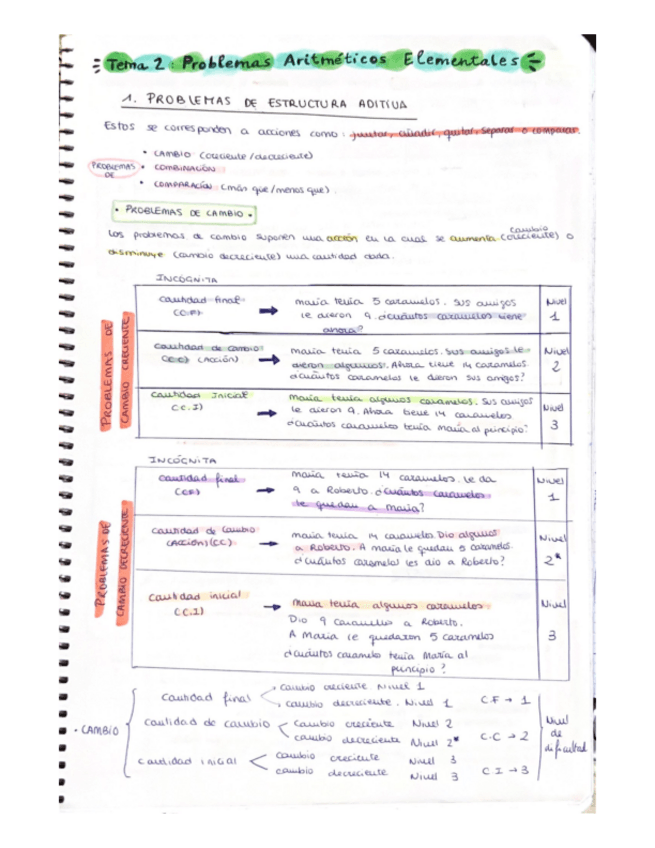 Tema 2: Problemas Aritméticos Elementales
1. PROBLEMAS DE ESTRUCTURA ADITIVA
Estos se corresponden a acciones como: juntar, añadir, quitar, separar o comparar.
PROBLEMAS DE
• CAMBIO (creciente/decreciente)
• COMBINACIÓN
• COMPARACIÓN (más que/menos que).
• PROBLEMAS DE CAMBIO •
Los problemas de cambio suponen una acción en la cual se aumenta (cambio creciente) o
disminuye (cambio decreciente) una cantidad dada.
PROBLEMAS DE CAMBIO CRECIENTE
INCÓGNITA
cantidad final (C.F) → María tenía 5 caramelos. Sus amigos Nivel
le dieron 9. ¿Cuántos caramelos tiene 1
ahora?
cantidad de cambio (C.C) (ACCIÓN) → María tenía 5 caramelos. Sus amigos le Nivel
dieron algunos. Ahora tiene 14 caramelos. 2
¿Cuántos caramelos le dieron sus amigos?
cantidad Inicial (C.I) → María tenía algunos caramelos. Sus amigos Nivel
le dieron 9. Ahora tiene 14 caramelos 3
¿Cuántos caramelos tenía María al principio?
PROBLEMAS DE CAMBIO DECRECIENTE
INCÓGNITA
cantidad final (C.F) → María tenía 14 caramelos. Le da Nivel
9 a Roberto. ¿Cuántos caramelos 1
le quedan a María?
cantidad de cambio (ACCIÓN) (C.C) → María tenía 14 caramelos. Dio algunos Nivel
a Roberto. A María le quedan 5 caramelos. 2*
¿Cuántos caramelos les dio a Roberto?
cantidad inicial (C.I) → María tenía algunos caramelos Nivel
Dio 9 caramelos a Roberto.
A María le quedaron 5 caramelos 3
¿Cuántos caramelo tenía María al
principio?
• CAMBIO
cantidad final
cambio creciente. Nivel 1
cambio decreciente. Nivel 1 C.F → 1
cantidad de cambio
cambio creciente Nivel 2
cambio decreciente Nivel 2* C.C → 2
cantidad inicial
cambio creciente Nivel 3
cambio decreciente Nivel 3 C I → 3
Nivel
de
dificultad